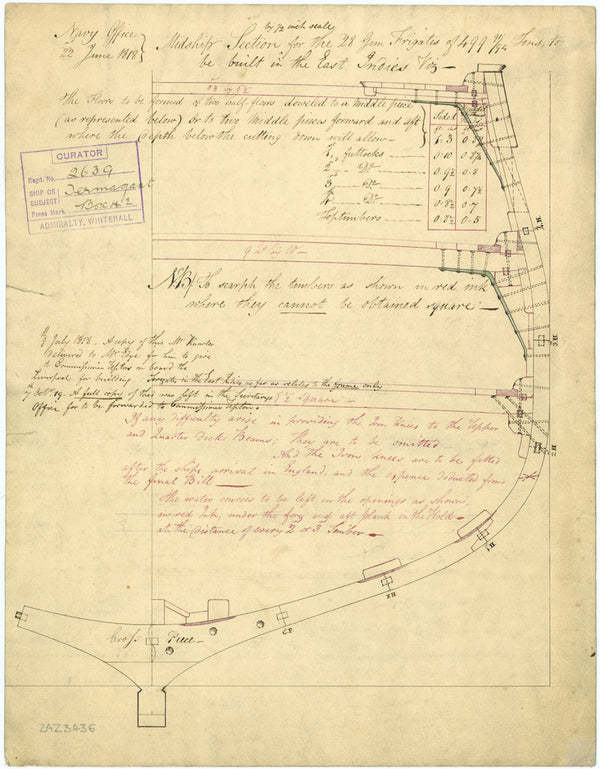 by 1/2 inch scale
Navy Office
22 June 1818
Midship Section for the 28 Gun Frigates of 499 Tons, to
be built in the East Indies Viz
The Floors to be formed of two half floors doweled to a middle piece
(as represented below) Or to two middle pieces forward and aft
where the depth below the cutting down will allow
Sided
1, futtocks
2
3
4
Toptimbers
1. 3
0.10
0.9½
0.9
0.8½
0.8½
CURATOR
Regd. No. 2639
SHIP OR SUBJECT: Termagant
Press Mark Box 42
ADMIRALTY, WHITEHALL
NB/ To scarph the timbers as shown in red ink
where they cannot be obtained square
July 1818. A copy of this Mr. Knowles
delivered to Mr. Pope for him to give
to Commissioner Upton on board the
Liverpool for building Frigates in the East Indies as far as relates to the frame only
Octr. 19. A full copy of this was left in the Secretary's
Office for to be forwarded to Commissioner Upton.
Square
If any difficulty arise in providing the Iron knees to the Upper
and Quarter Deck Beams; They are to be omitted
And the Iron knees are to be fitted
after the ships arrival in England, and the expence deducted from
the final Bill
The water courses to be left in the openings as shown
in red Ink, under the fore and aft plank in the Hold
at the distance of every 2 or 3 Timber
Cross Piece
ZAZ3436